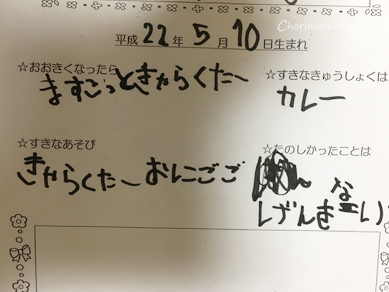 Chorimame
平成22年5月10日生まれ
☆おおきくなったら
ますこっときゃらくたー
☆すきなきゅうしょくは
カレー
☆すきなあそび
きゃらくたーおにごご
☆たのしかったことは